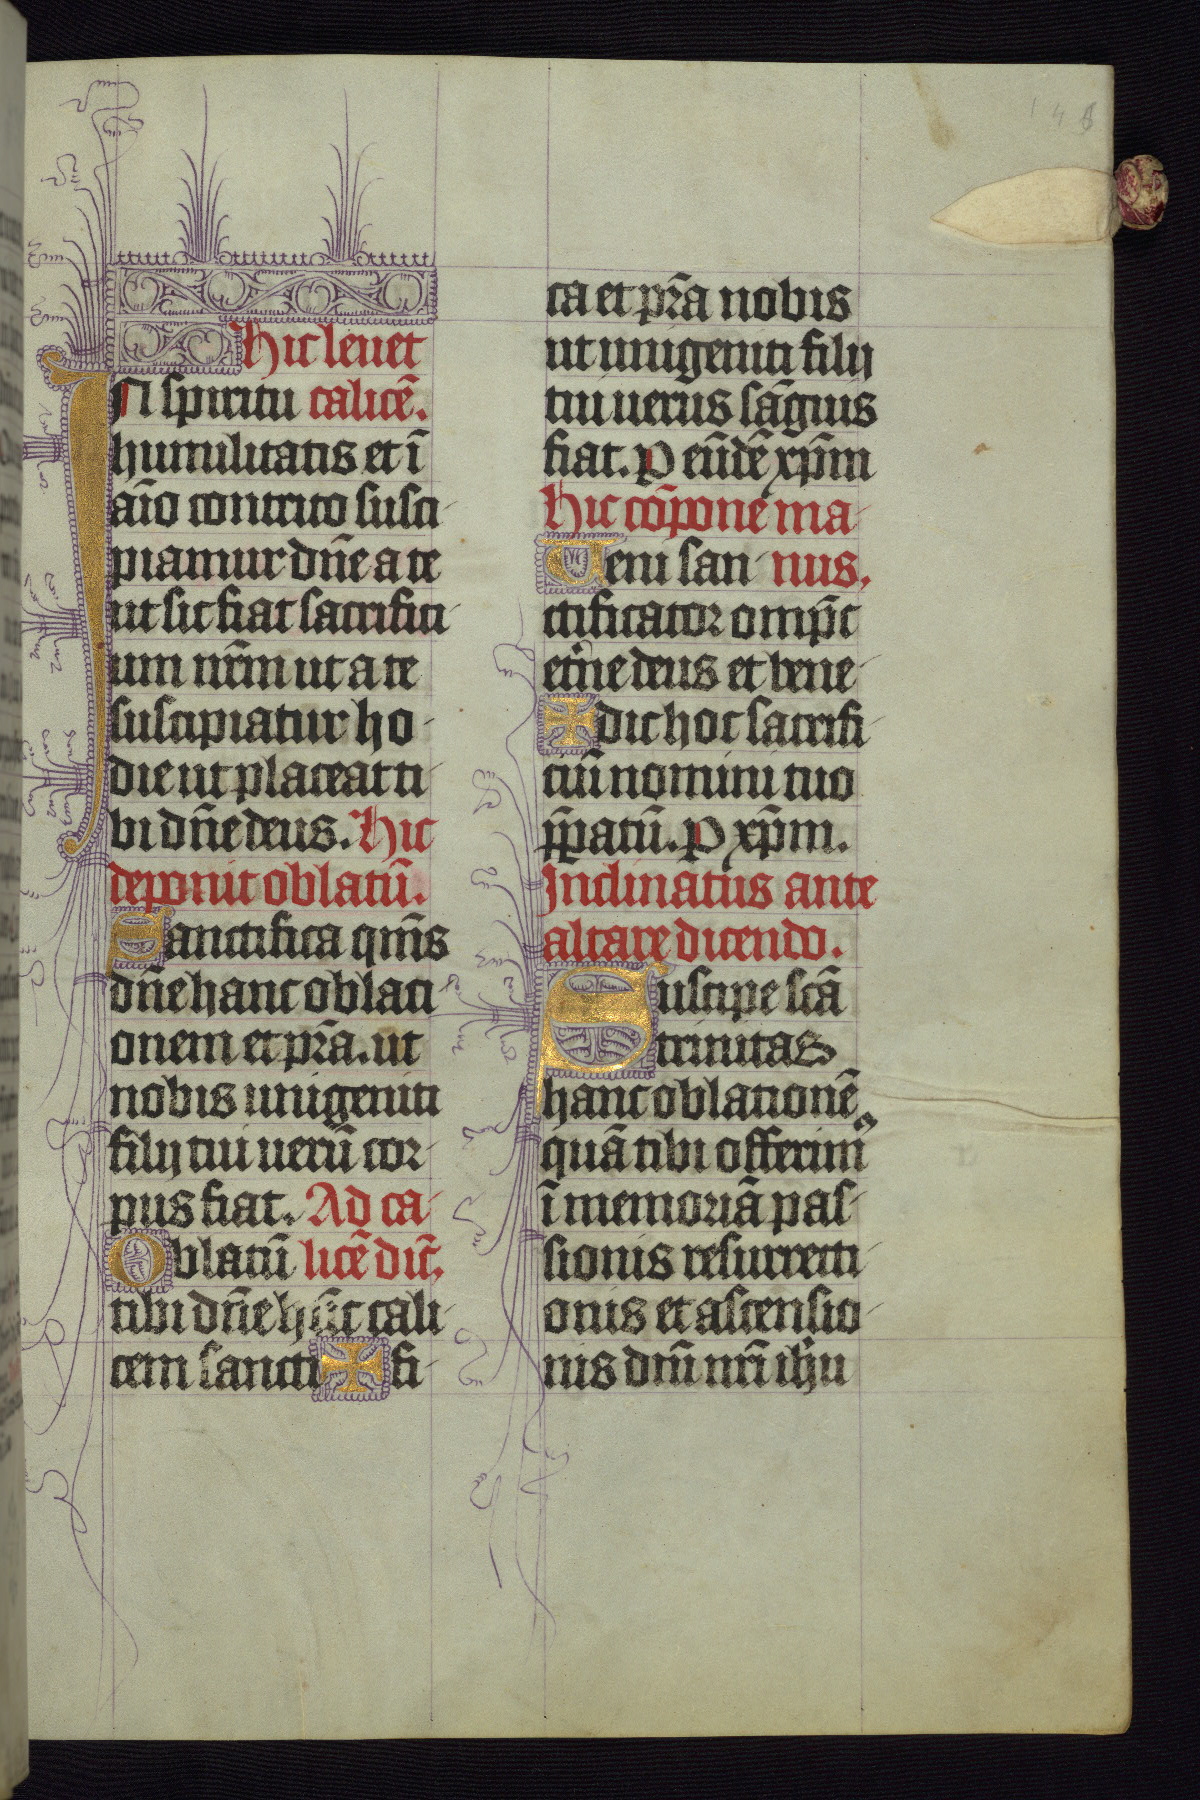 Hic leuet
In spiritu calicē.
humilitatis et ī
aīo contrito susci-
piamur dn̄e a te
ut sic fiat sacrifici-
um nr̄m ut a te
suscipiatur ho-
die ut placeat ti-
bi dn̄e deus. Hic
deponit oblatū.
Sanctifica qm̄s
dn̄e hanc oblati-
onem et pr̄a. ut
nobis unigeniti
filij tui uerū cor-
pus fiat. Ad ca-
Oblatū licē dic̄.
tibi dn̄e hūc cali-
cem sancti ✠ fi-
ca et pr̄a nobis
ut unigeniti filij
tui uerus sāguis
fiat. P eūdē xp̄m
Hic cōpone ma-
Ueni san- nus.
ctificator omp̄c
et̄ne deus et bene-
✠ dic hoc sacrifi-
ciū nomini tuo
p̄patū. P xp̄m.
Inclinatus ante
altare dicendo.
Suscipe scā
trinitas
hanc oblationē
quā tibi offerimꝰ
ī memoriā pas-
sionis resurrecti-
onis et ascensio-
nis dn̄i nr̄i ih̄u
148